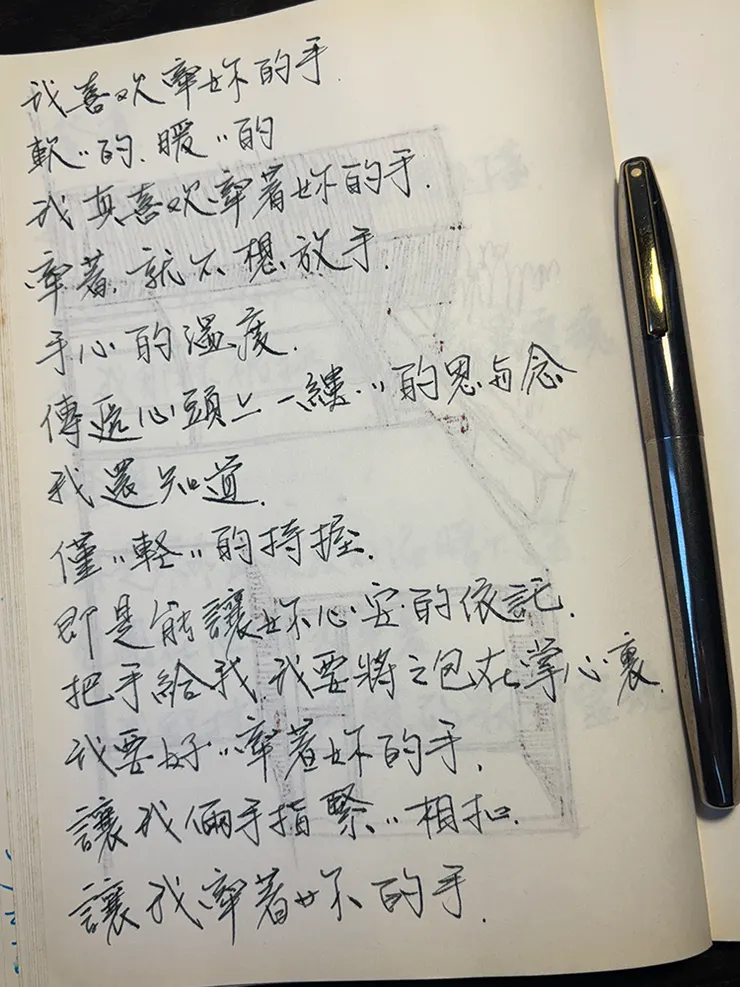 我喜欢牽妳的手.
軟〃的.暖〃的
我真喜欢牽著妳的手.
牽著.就不想放手.
手心的溫度.
傳遞心頭上一縷〃的思与念
我還知道.
僅〃輕〃的持握.
即是能讓妳心安的依託.
把手給我.我要將之包在掌心裏.
我要好〃牽著妳的手.
讓我倆手指緊〃相扣.
讓我牽著妳的手.